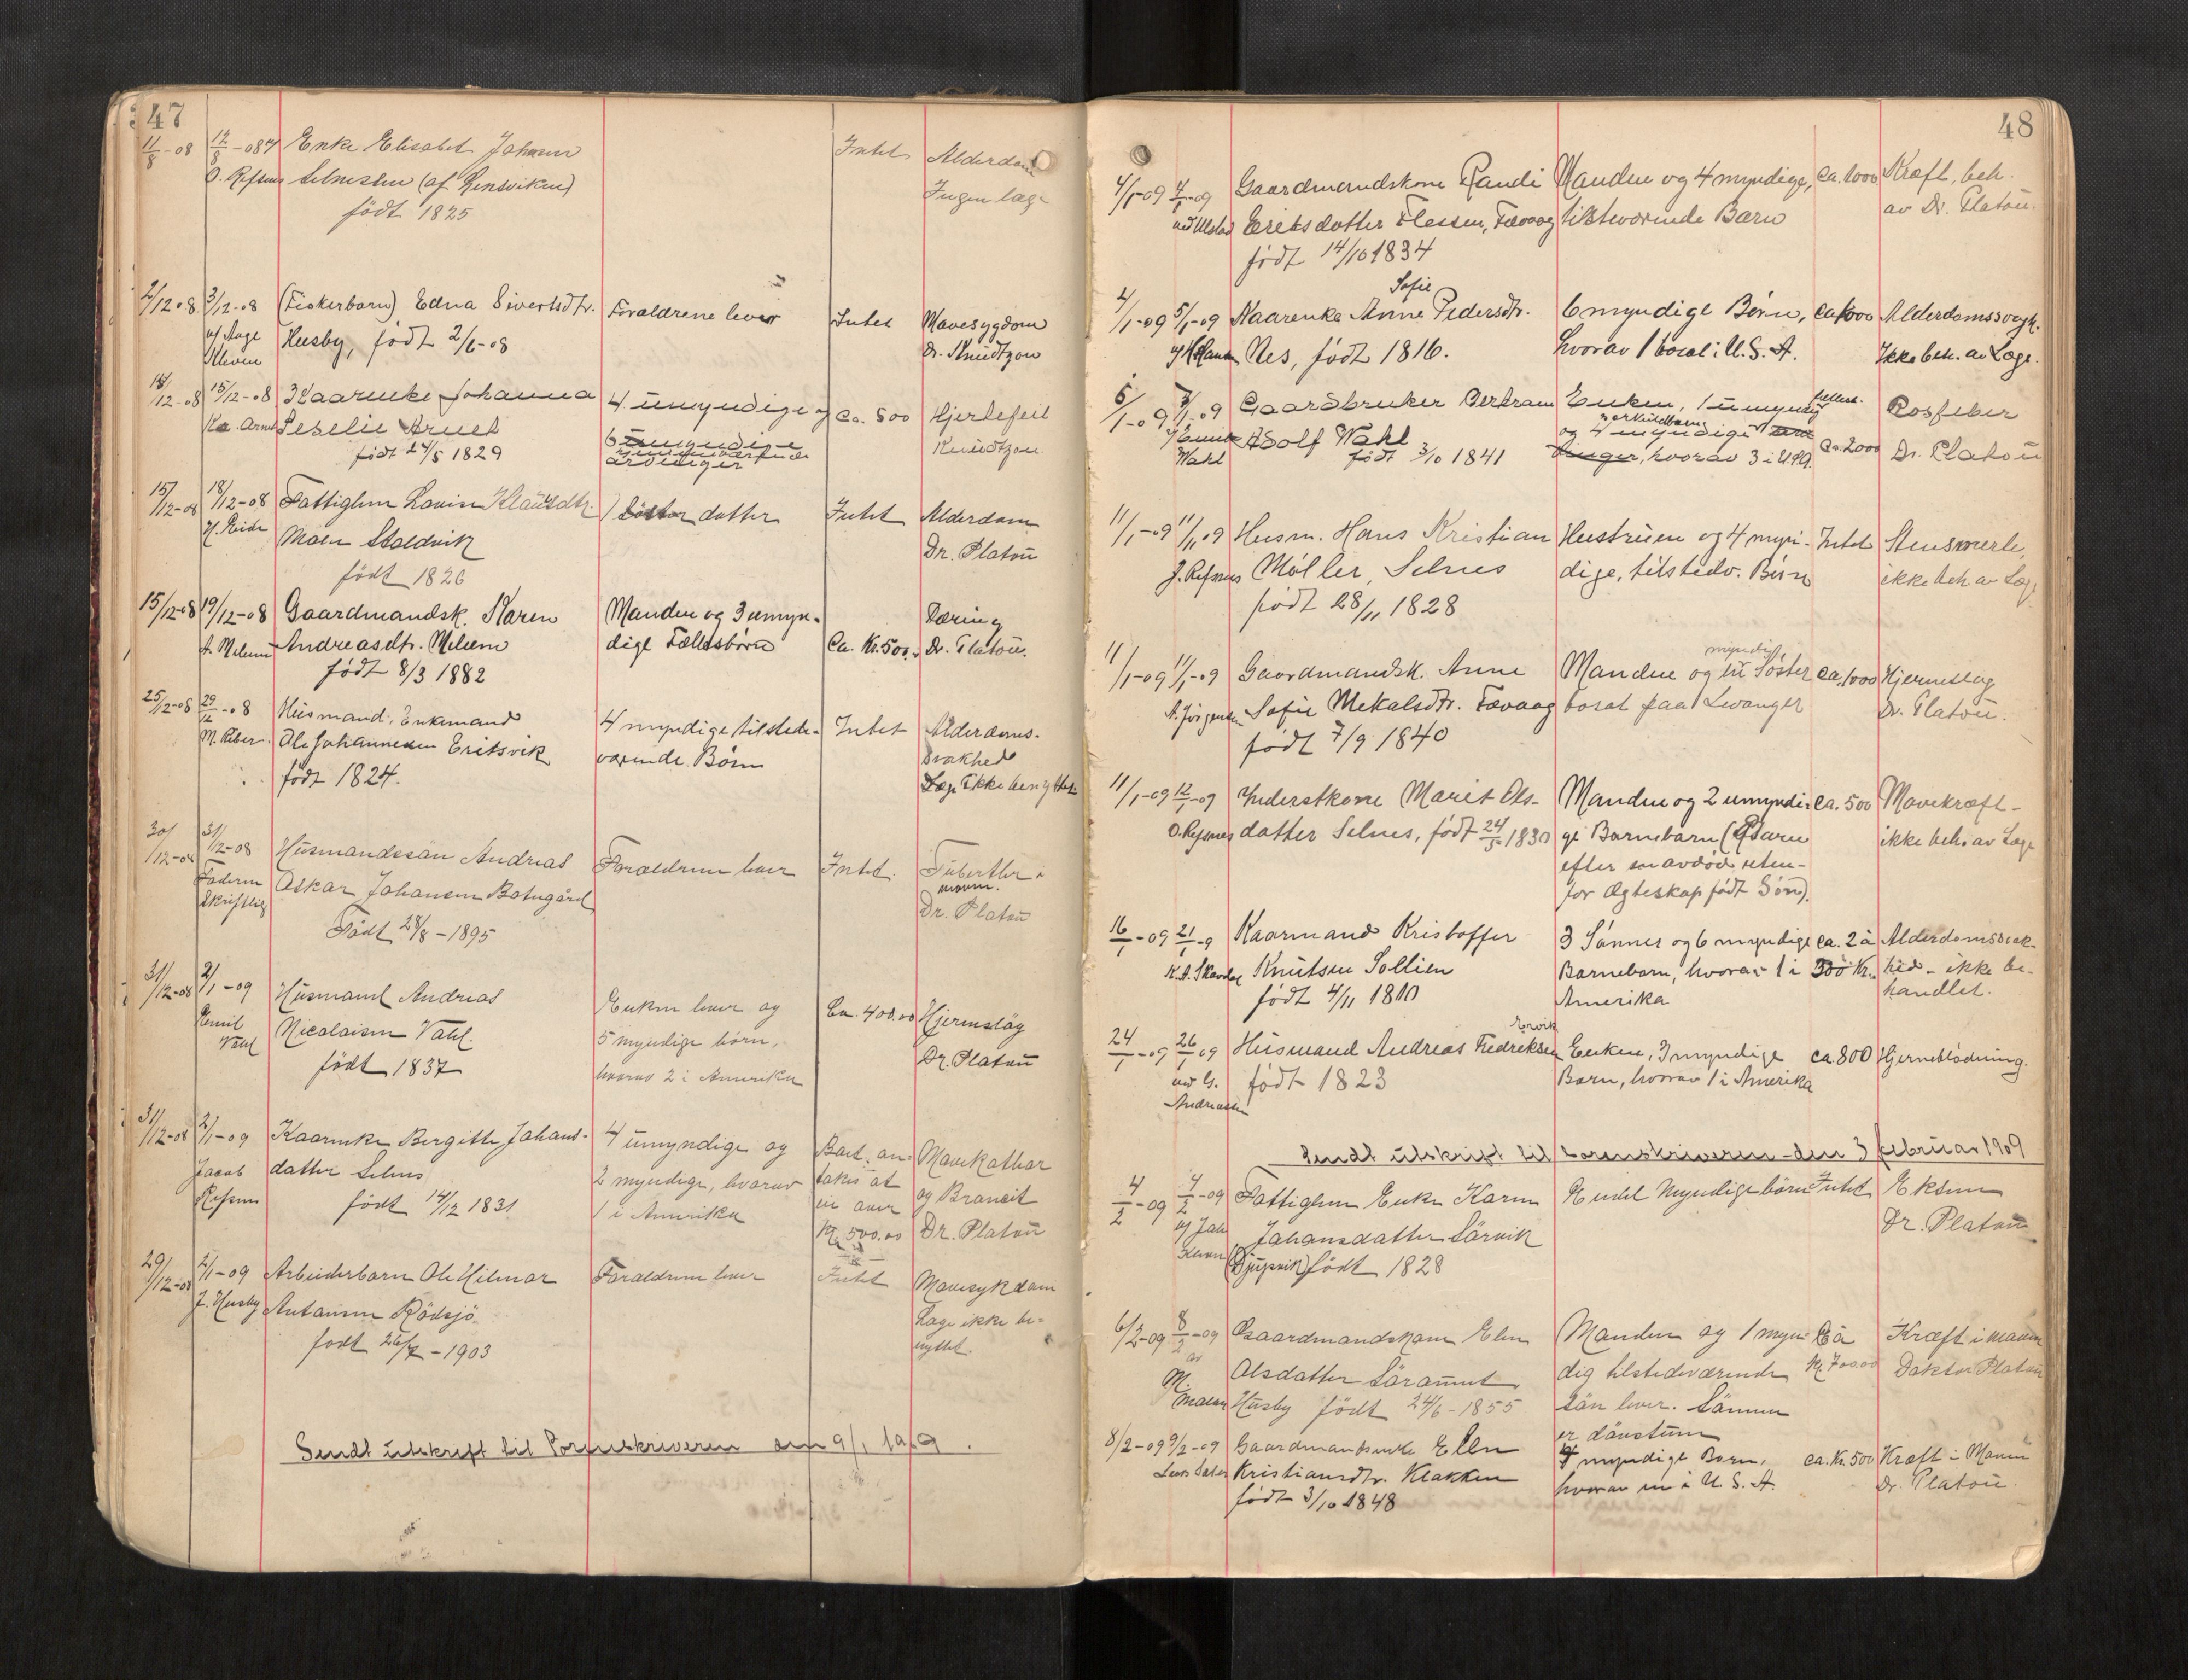 47
11/8-08 12/8-08 Enke Elisabet Johann Intet Alderdom
O. Refsnes Selnesten (af Rensviken) Ingen læge
født 1825
2/12 08 3/12-08 (Fiskerbarn) Edna Sivertsdtr. Forældrene lever Intet Mavesygdom
af Aage Husby, født 2/6-08 Dr. Knudtzon
15/12-08 Kaarenke Johanna 4 umyndige og Ca. 500 Hjertefeil
født 24/5 1829 Knudtzon
15/12-08 18/12-08 Fattiglem Lovise Klausdtr. 1 datter Intet Alderdom
Moen Staldvik Dr. Platou
født 1826
15/12-08 19/12-08 Gaardmandsk. Karen Manden og 3 umyn- Tæring
A. Melum Andreasdtr. Melum dige Fællesbørn Ca. Kr. 500. Dr. Platou.
født 8/3 1882
25/12-08 29/12-08 Husmand, Enkemand 4 myndige tilstede- Intet Alderdoms-
M. Reber Ole Johannesen Eritsvik værende Børn svakhed
født 1824. Læge ikke benyttet
30/12-08 31/12-08 Husmandssøn Andreas Forældrene lever Intet. Tuberklo-
Faderen Oskar Johansen Botngård
skriftlig Dr. Platou
Født 28/8-1895
31/12-08 2/1-09 Husmand Andreas Enken lever og Ca. 400.00 Hjerneslag
Emil Nicolaisen Vahl. 5 myndige børn,
Vahl født 1837 hvorav 2 i Amerika Dr. Platou
31/12-08 2/1-09 Kaarenke Bergitte Johans- 4 umyndige og Boet an- Mavekathar
Jacob datter Selnes 2 myndige, hvorav takes at og Brancit
født 14/12 1831 1 i Amerika Kr. 500.00 Dr. Platou
29/12-08 2/1-09 Arbeiderbarn Ole Hilmar Forældrene lever Intet Mavesykdom
J. Husby Antonsen Rødsjø Læge ikke be-
født 26/7-1903 nyttet.
Sendt utskrift til Sorenskriveren den 9/1 1909.
48
4/1-09 7/1-09 Gaardmandskone Randi Manden og 4 myndige, ca. 1000 Kræft, beh.
Eriksdatter Flessen, Fævaag tilstværende Børn av Dr. Platou.
født 14/10 1834
Sofie
4/1-09 5/1-09 Kaarenke Anne Pedersdtr. 6 myndige Børn, ca 1000 Alderdomssvagh.
Nes, født 1816. hvorav 1 bosat i U.S.A. Ikke beh. av Læge.
6/1-09 8/1-09 Gaardbruker Bertram Enken, 1 umyndig Rosfeber
Adolf Wahl og 4 myndige
Wahl født 3/10 1841 hvorav 3 i U.S.A. Ca. 2000 Dr. Platou
11/1-09 11/1 09 Husm. Hans Kristian Hustruen og 4 myn- Intet Stensmerte,
J. Refsnes Møller, Selnes dige, tilstedv. Børn ikke beh av Læge
født 28/11 1828
myndig
11/1-09 11/1-09 Gaardmandsk. Anne Manden og en Søster ca. 1000 Hjerneslag
A. Jørgensen Sofie Mekalsdtr. Fævaag bosat paa Levanger Dr. Platou.
født 7/9 1840
11/1-09 12/1-09 Inderstkone Marit Ols- Manden og 2 umyndi- ca. 500 Mavekræft-
O. Refsnes datter Selnes, født 24/5 1830 ge Barnebarn (Barn ikke beh. av Læge
efter en avdød uten-
for Ægteskap født Søn).
16/1-09 21/1-9 Kaarmand Kristoffer 3 Sønner og 6 myndige ca. 2 à Alderdomssvak-
Knutsen Sollien Barnebarn, hvorav 1 i 300 Kr. hed - ikke be-
født 4/11 1810 Amerika handlet.
24/1-09 26/1 09 Husmand Andreas Fredriksen Enken, 3 myndige ca 800 Hjerneblødning.
ved G. født 1823 Børn, hvorav 1 i Amerika
Andreassen
Sendt utskrift til Sorenskriveren den 3 februar 1909
4/2-09 4/2-09 Fattiglem Enke Karen Endel Myndige børn Intet Eksem
Johansdatter Sørvik Dr. Platou
født 1828
6/2-09 8/2-09 Gaardmandskone Elen Manden og 1 myn- Ca Kræft i maven
av Olsdatter dig tilstedeværende Kr. 700.00 Doktor Platou
M. Husby født 24/6-1855 søn lever. Sønnen
er døvstum
8/2-09 9/2-09 Gaardmandsenke Ellen 4 myndige Børn, ca. Kr. 500 Kræft i Maven
Kristiansdtr. Klakken hvorav en i U.S.A. Dr. Platou.
født 3/10 1848